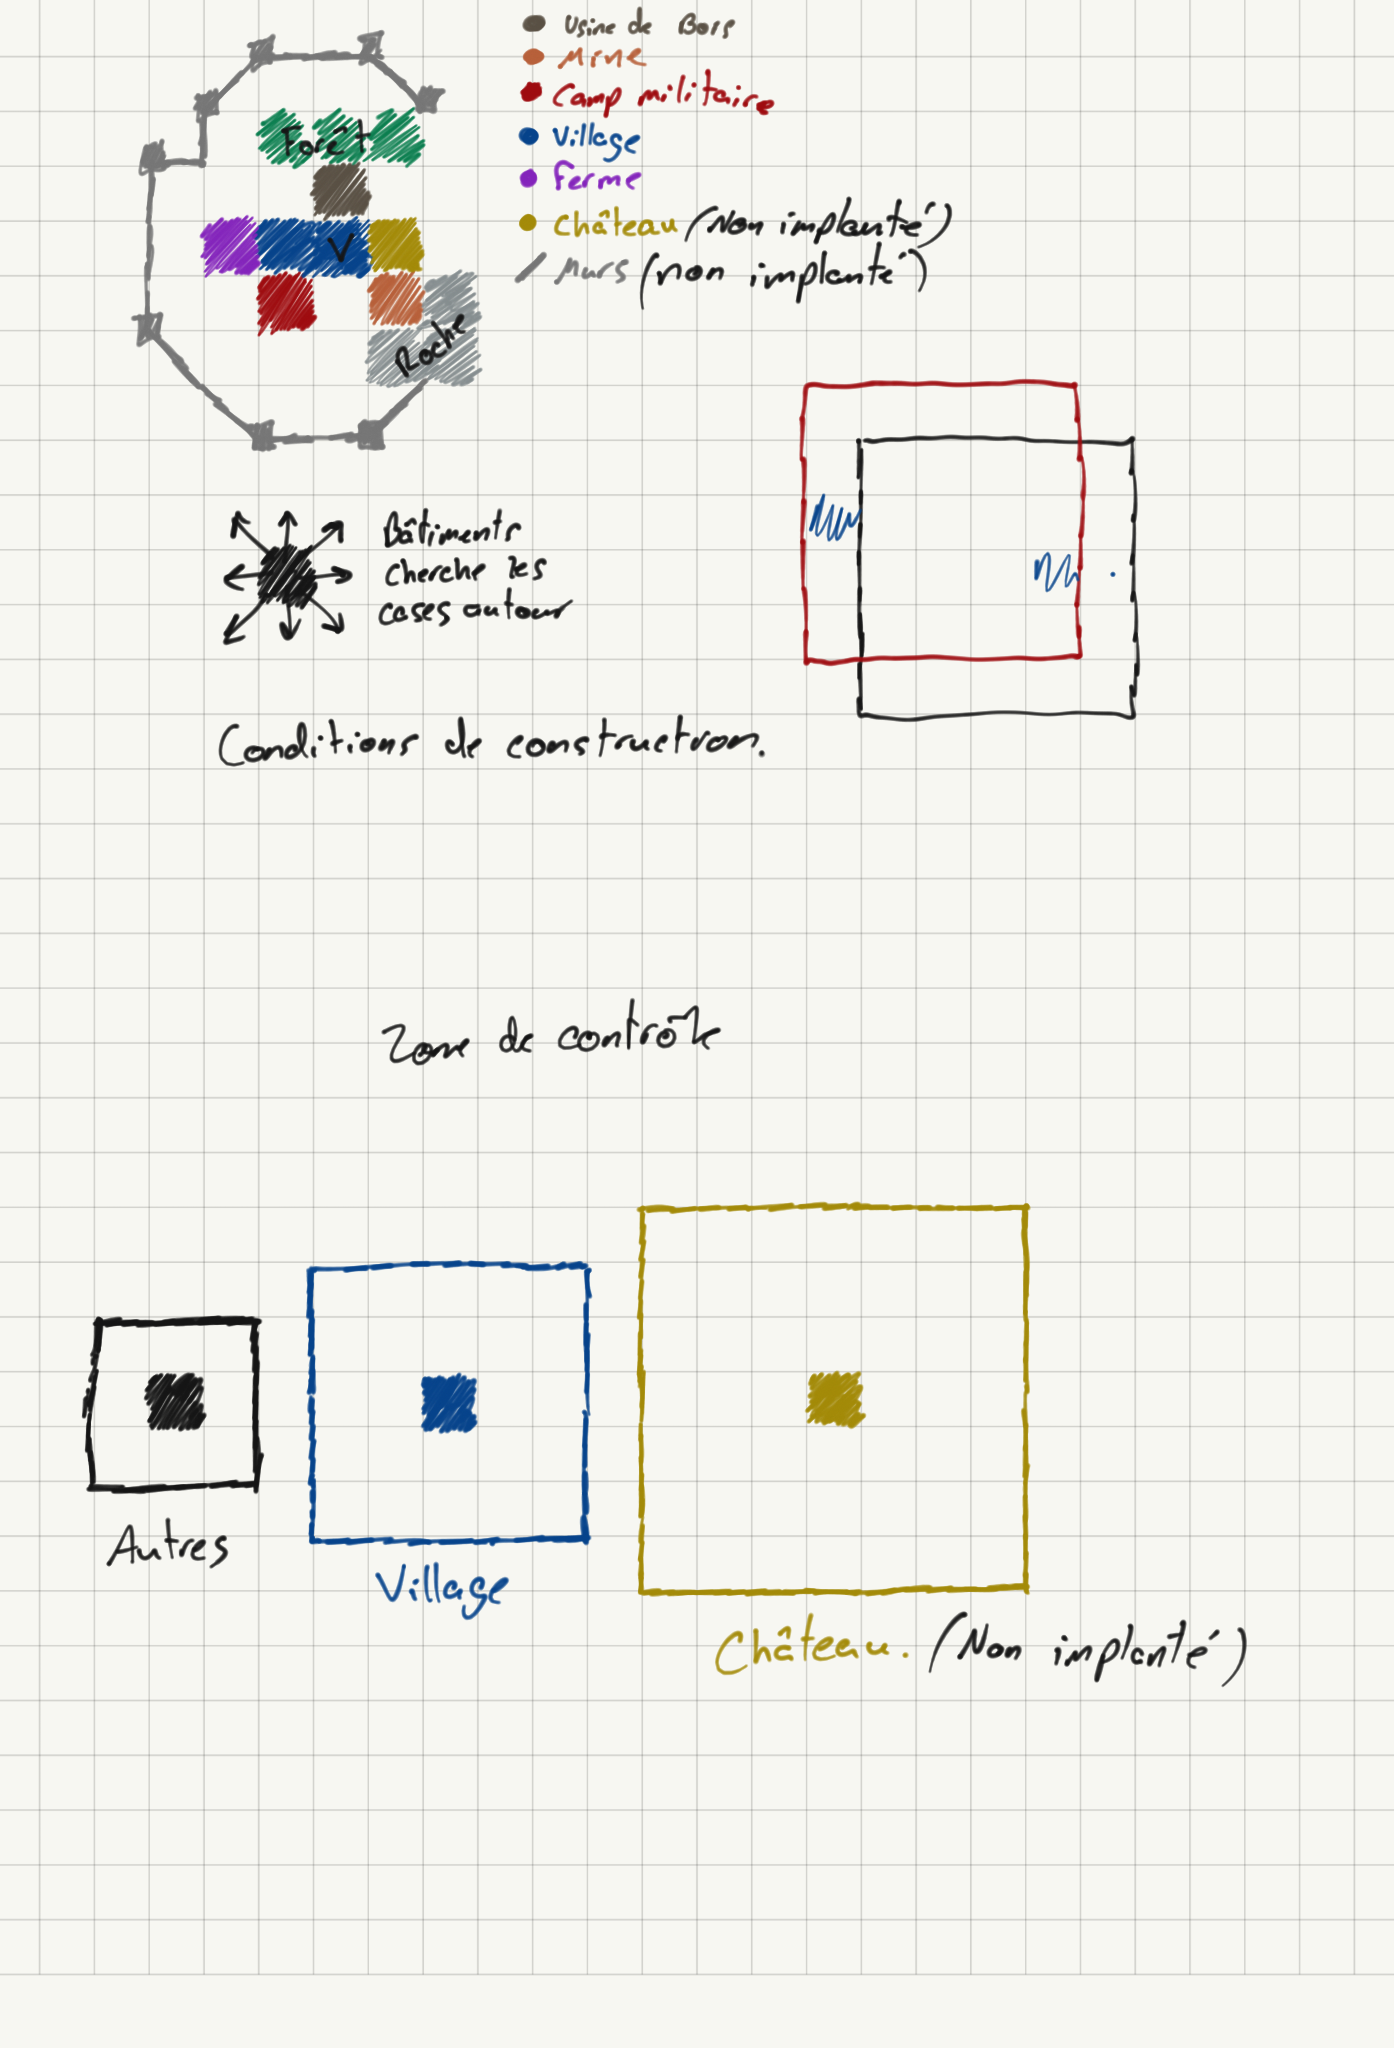 Usine de Bois
Mine
Camp militaire
Village
Ferme
Château (Non implanté)
Murs (non implanté)
Forêt
V
Roche
Bâtiments
cherche les
cases autour
Conditions de construction.
Zone de contrôle
Autres
Village
Château. (Non implanté)